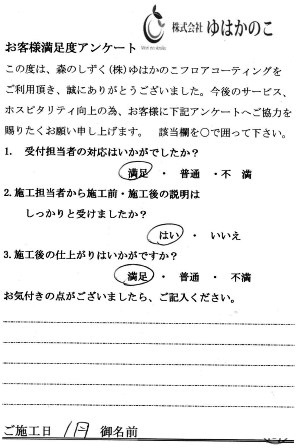 株式会社 ゆはかのこ
お客様満足度アンケート
この度は、森のしずく(株)ゆはかのこフロアコーティングを
ご利用頂き、誠にありがとうございました。今後のサービス、
ホスピタリティ向上の為、お客様に下記アンケートへご協力を
賜りたくお願い申し上げます。 該当欄を○で囲って下さい。
1. 受付担当者の対応はいかがでしたか?
満足 ・ 普通 ・不 満
2.施工担当者から施工前・施工後の説明は
しっかりと受けましたか?
はい ・ いいえ
3.施工後の仕上がりはいかがですか?
満足 ・ 普通 ・ 不満
お気付きの点がございましたら、ご記入ください。
ご施工日 1月 御名前